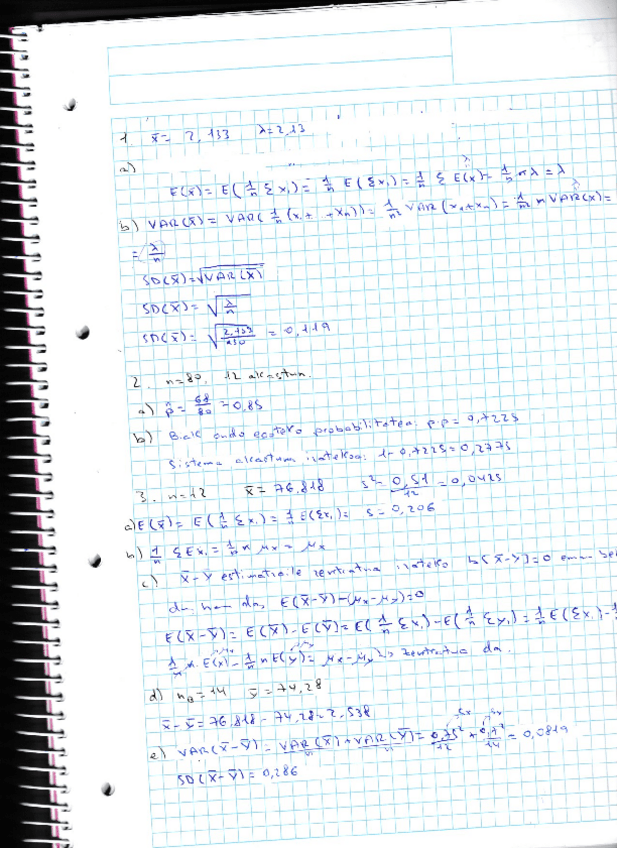 1. x̄ = 2,133 λ=2,13
a)
E(x̄) = E(1/n Σxi) = 1/n E(Σxi) = 1/n Σ E(x) = 1/n nλ = λ
b) VAR(x̄) = VAR(1/n (x1+ +xn)) = 1/n² VAR(x1+xn) = 1/n² n VAR(x) =
= λ/n
SD(x̄) = √VAR(x̄)
SD(x̄) = √(λ/n)
SD(x̄) = √(2,133/150) = 0,119
2. n=80. 12
a) p̂ = 68/80 = 0,85
b) Biak ondo egoteko probabilitatea: p·p = 0,7225
Sistema izatekoa: 1-0,7225=0,2775
3. n=12 x̄ = 76,818 s² = 0,51/12 = 0,0425
a) E(x̄) = E(1/n Σxi) = 1/n E(Σxi) = s = 0,206
b) 1/n ΣExi = 1/n n μx = μx
c) x̄-ȳ estimatzaile zentratua izateko b(x̄-ȳ)=0 eman
da, hau da, E(x̄-ȳ)-(μx-μy)=0
E(x̄-ȳ) = E(x̄)-E(ȳ) = E(1/n Σxi)-E(1/n Σyi) = 1/n E(Σxi)-1
1/n n E(x)-1/n n E(y) = μx-μy => zentratua da.
d) nB=14 ȳ = 74,28
x̄-ȳ = 76,818-74,28=2,538
e) VAR(x̄-ȳ) = VAR(x̄)/n + VAR(ȳ)/n = 0,75²/12 + 0,7²/14 = 0,0819
SD(x̄-ȳ) = 0,286